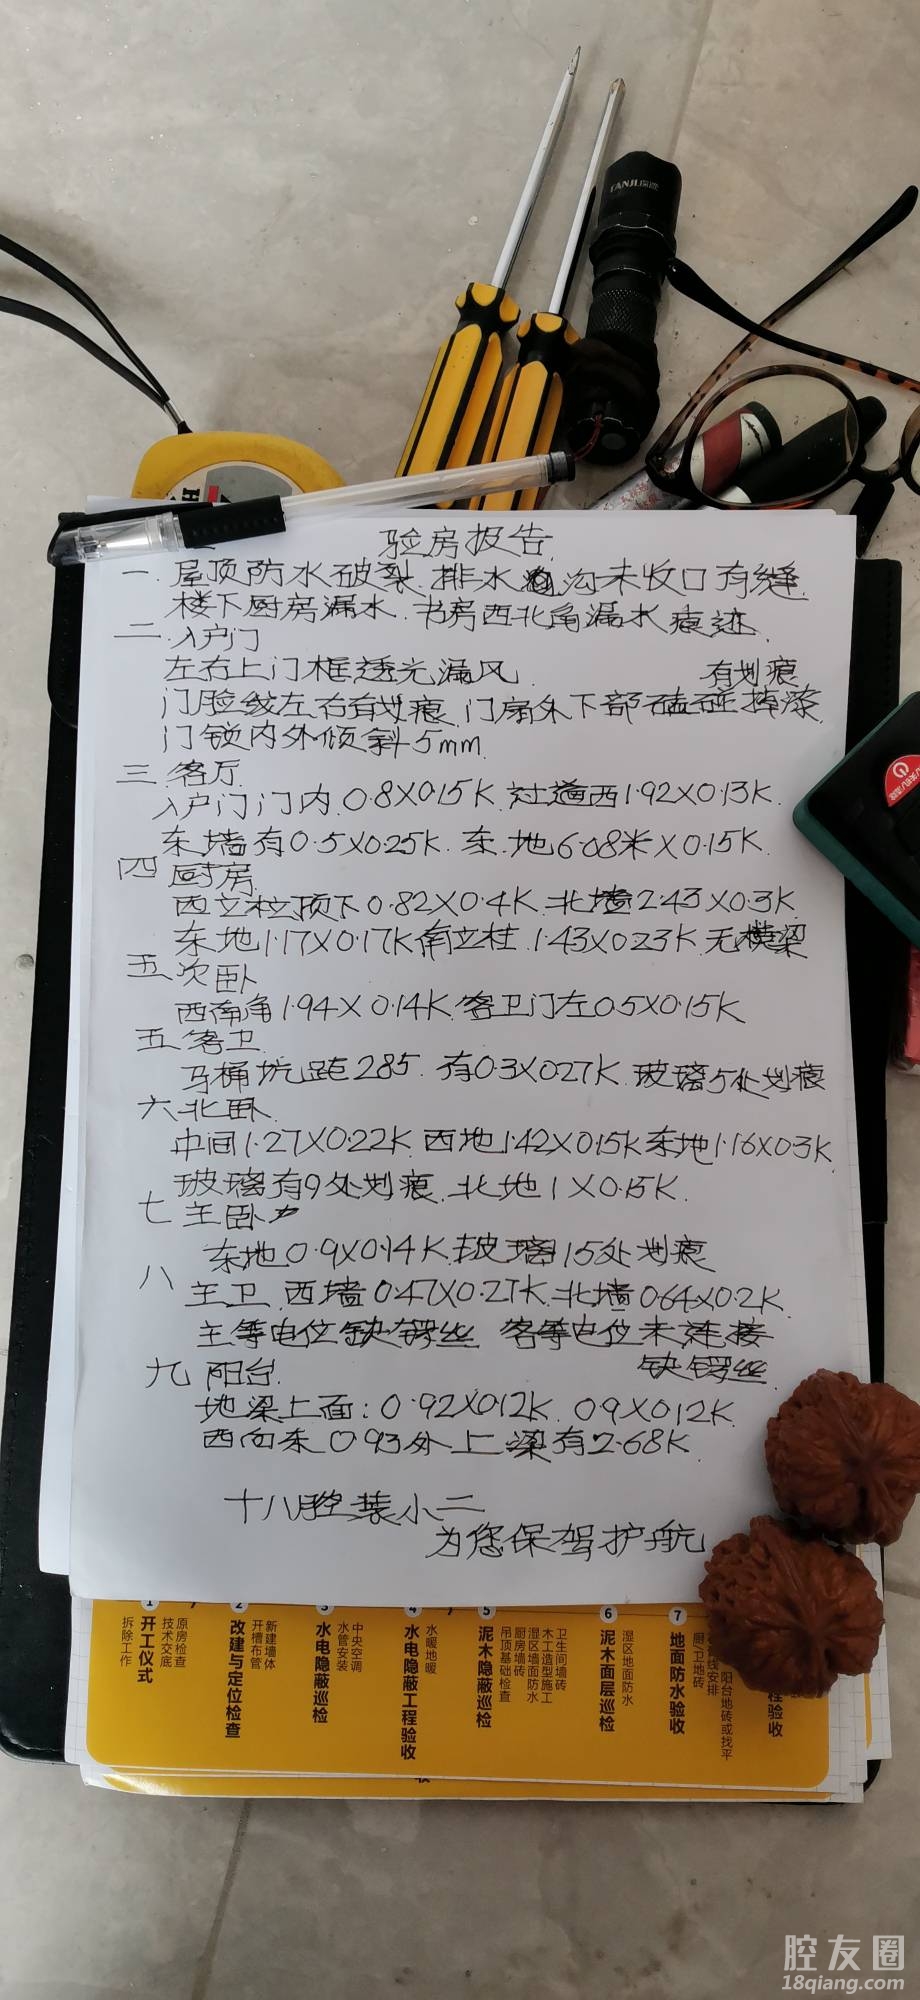 TANJLI探路
验房报告
一.屋顶防水破裂.排水沟未收口有缝.
楼下厨房漏水.书房西北角漏水痕迹.
二.入户门
左右上门框透光漏风. 有划痕
门脸线左右有划痕.门扇外下部磕碰掉漆.
门锁内外倾斜5mm.
三.客厅
入户门门内.0.8X0.15K.过道西1.92X0.13K.
东墙有0.5X0.25K.东.地6.08米X0.15K.
四 厨房
西立柱顶下0.82X0.4K.北墙2.43X0.3K.
东地1.17X0.17K南立柱.1.43X0.23K无横梁
五.次卧
西南角1.94X0.14K.客卫门左0.5X0.15K
五.客卫
马桶坑距285.有0.3X027K.玻璃5处划痕
六.北卧
中间1.27X0.22K.西地1.42X0.15K东地1.16X03K
玻璃有9处划痕.北地1X0.15K.
七 主卧
东地0.9X0.14K.玻璃15处划痕
八 主卫.西墙0.47X0.27K.北墙0.64X0.2K.
主等电位缺锣丝 客等电位未连接
缺锣丝
九 阳台.
地梁上面:0.92X0.12K.09X0.12K.
西向东093外上梁有2.68K.
十八腔装小二
为您保驾护航
1 开工仪式
拆除工作
原房检查
技术交底
2 改建与定位检查
开槽布管
新建墙体
3 水电隐蔽巡检
水管安装
中央空调
4 水电隐蔽工程验收
水暖地暖
5 泥木隐蔽巡检
吊顶基础检查
厨房墙砖
湿区墙面防水
木工造型施工
卫生间墙砖
6 泥木面层巡检
湿区地面防水
7 地面防水验收
厨/卫地砖
阳台地砖或找平
程验收
腔友圈
18qiang.com